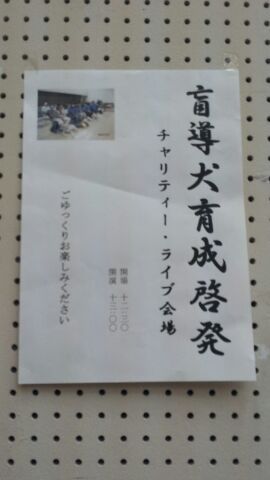 盲導犬育成啓発
チャリティー・ライブ会場
開場 十二:三〇
開演 十三:〇〇
ごゆっくりお楽しみください